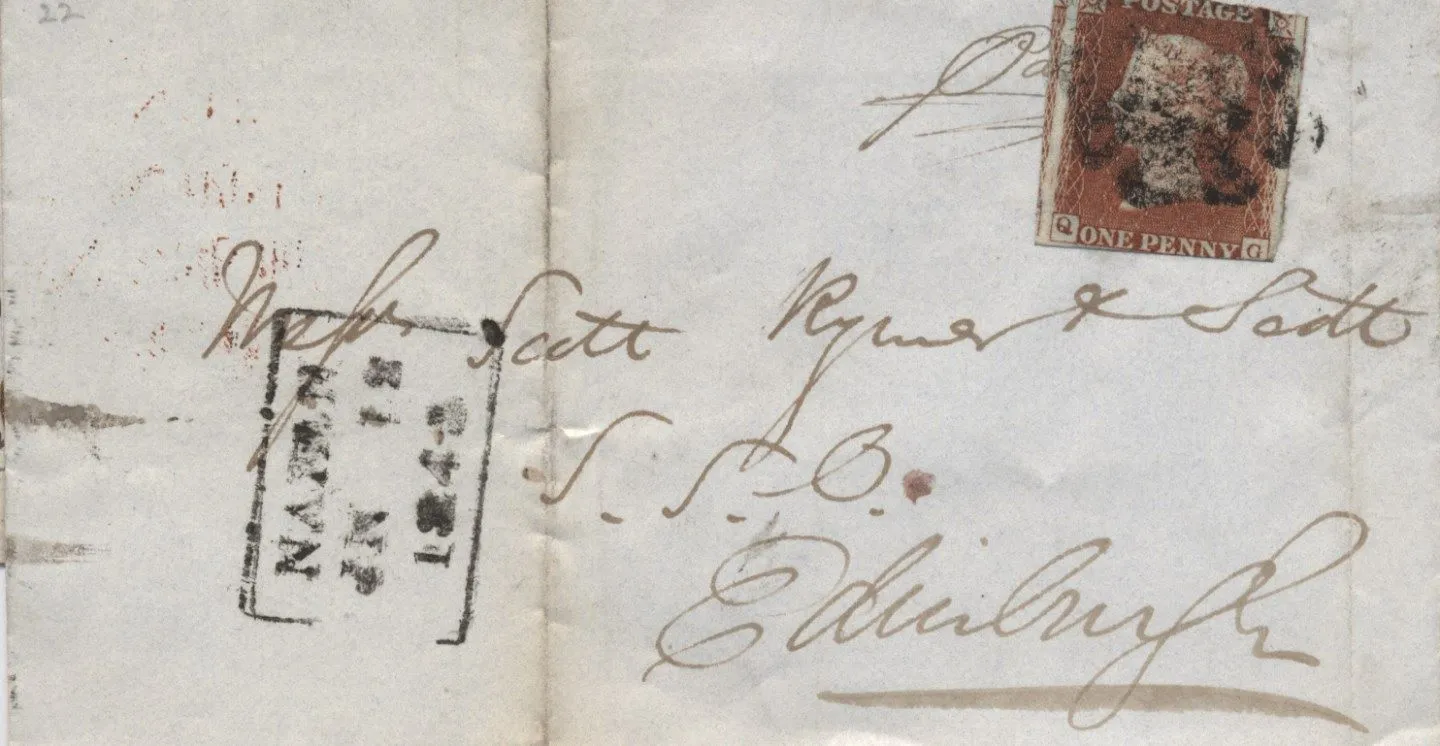 22
POSTAGE
Q ONE PENNY G
Messrs Scott Rymer & Scott
S. S. C.
Edinburgh
NAIRN
JN 12